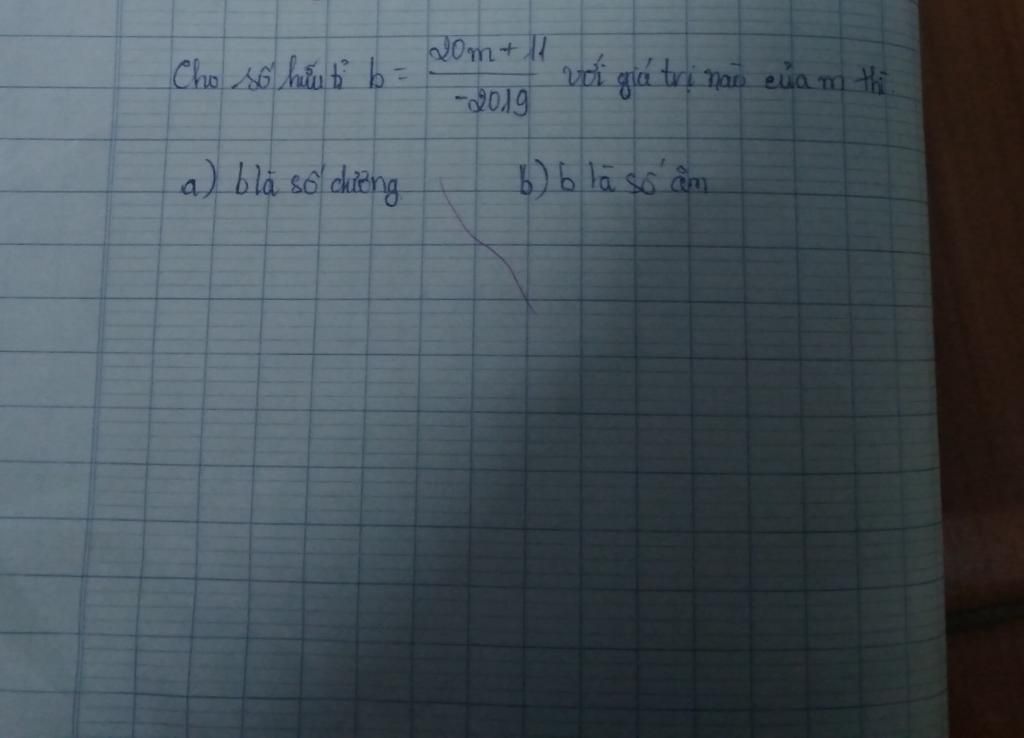 Cho số hữu tỉ b = \frac{20m + 11}{-2019} với giá trị nào của m thì
a) b là số dương b) b là số âm